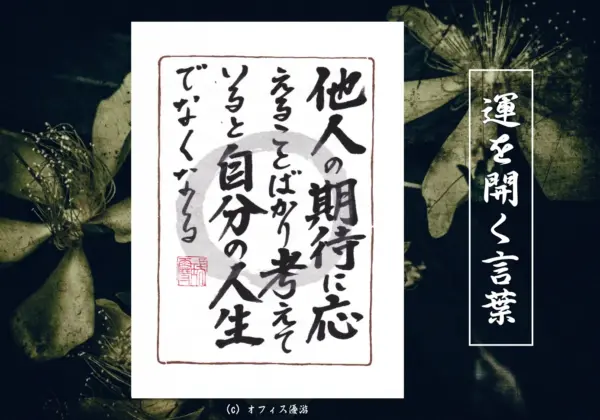 運を開く言葉
他人の期待に応
えることばかり考えて
いると自分の人生
でなくなる
(C) オフィス優游